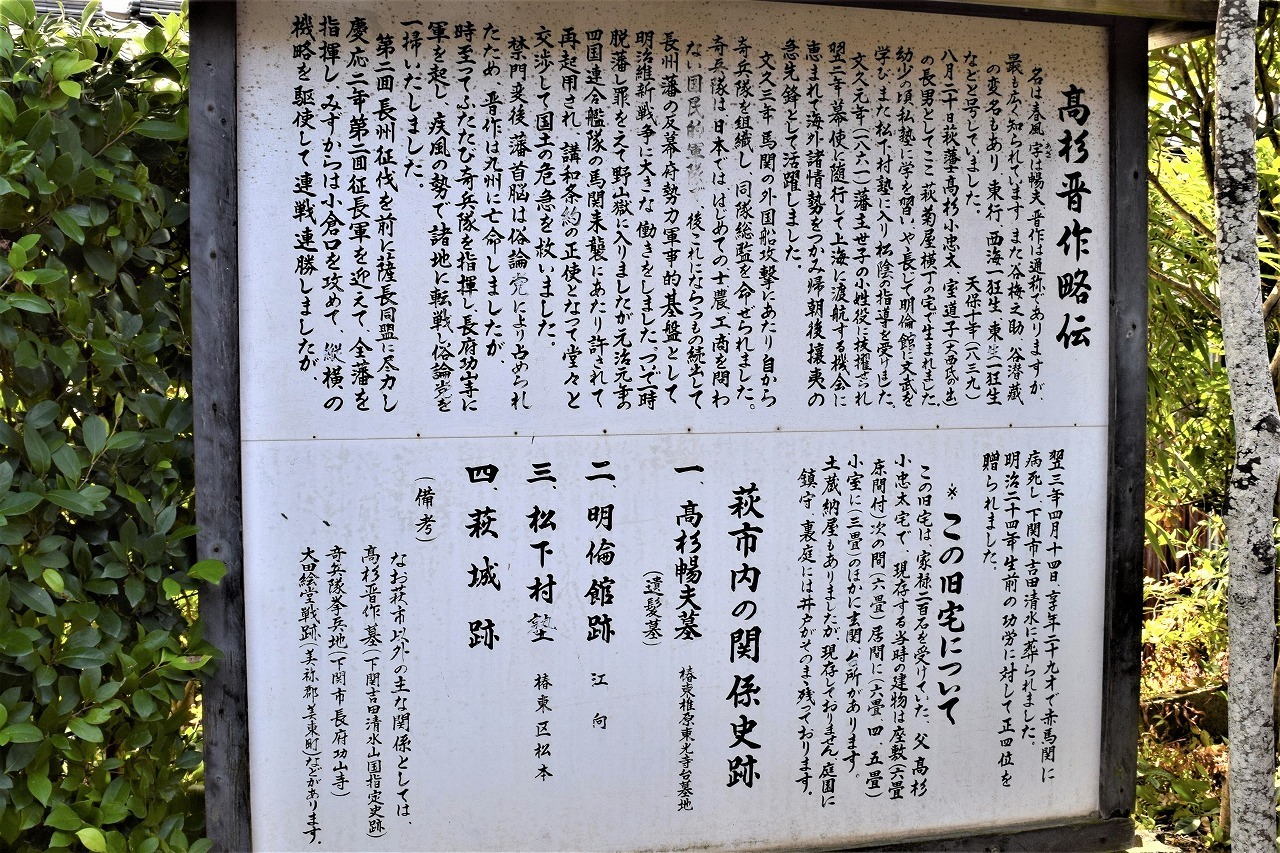 高杉晋作略伝
名は春風、字は暢夫、晋作は通称でありますが、
最も広く知られています。また谷梅之助、谷潜蔵
の変名もあり、東行、西海一狂生、東洋一狂生
などと号していました。　天保十年(一八三九)
八月二十日萩藩士高杉小忠太
の長男としてここ萩菊屋横丁の宅で生まれました。
幼少の頃私塾に学を習い、や長じて明倫館に文武を
学びまた松下村塾に入り松陰の指導を受けました。
文久元年(一八六一)藩主世子の小姓役に抜擢され
翌二年幕使に随行して上海に渡航する機会に
恵まれて海外諸情勢をつかみ帰朝後攘夷の
急先鋒として活躍しました。
文久三年馬関の外国船攻撃にあたり自から
奇兵隊を組織し、同隊総監を命ぜられました。
奇兵隊は日本でははじめての士農工商を問わ
ない国民的軍隊で、後これにならうもの続出して
長州藩の反幕府勢力軍事的基盤として
明治維新戦争に大きな働きをしました。ついで一時
脱藩し罪をえて野山獄に入りましたが元治元年の
四国連合艦隊の馬関来襲にあたり許されて
再起用され、講和条約の正使となって堂々と
交渉して国土の危急を救いました。
禁門変後、藩首脳は俗論党により占められ
たため、晋作は九州に亡命しましたが、
時至ってふたたび奇兵隊を指揮し長府功山寺に
軍を起し、疾風の勢で諸地に転戦し俗論党を
一掃いたしました。
第二回長州征伐を前に薩長同盟に尽力し
慶応二年第二回征長軍を迎えて、全藩を
指揮し、みずからは小倉口を攻めて、縦横の
機略を駆使して連戦連勝しましたが、
翌三年四月十四日、享年二十九才で赤馬関に
病死し、下関市吉田清水に葬られました。
明治二十四年生前の功労に対して正四位を
贈られました。
※この旧宅について
この旧宅は、家禄二百石を受けていた、父高杉
小忠太宅で、現存する当時の建物は座敷(六畳
床間付)次の間(六畳)居間に(六畳、四、五畳)
小室に(三畳)のほかに玄関、台所があります。
土蔵納屋もありましたが、現存しておりません。庭園に
鎮守、裏庭には井戸がそのまゝ残っております。
萩市内の関係史跡
一、高杉暢夫墓　椿東椎原東光寺台墓地
(遺髪墓)
二、明倫館跡　江向
三、松下村塾　椿東区松本
四、萩城跡
(備考)
なお萩市以外の主な関係としては、
高杉晋作墓(下関吉田清水山国指定史跡)
奇兵隊挙兵地(下関市長府功山寺)
大田絵堂戦跡(美祢郡美東町などがあります。